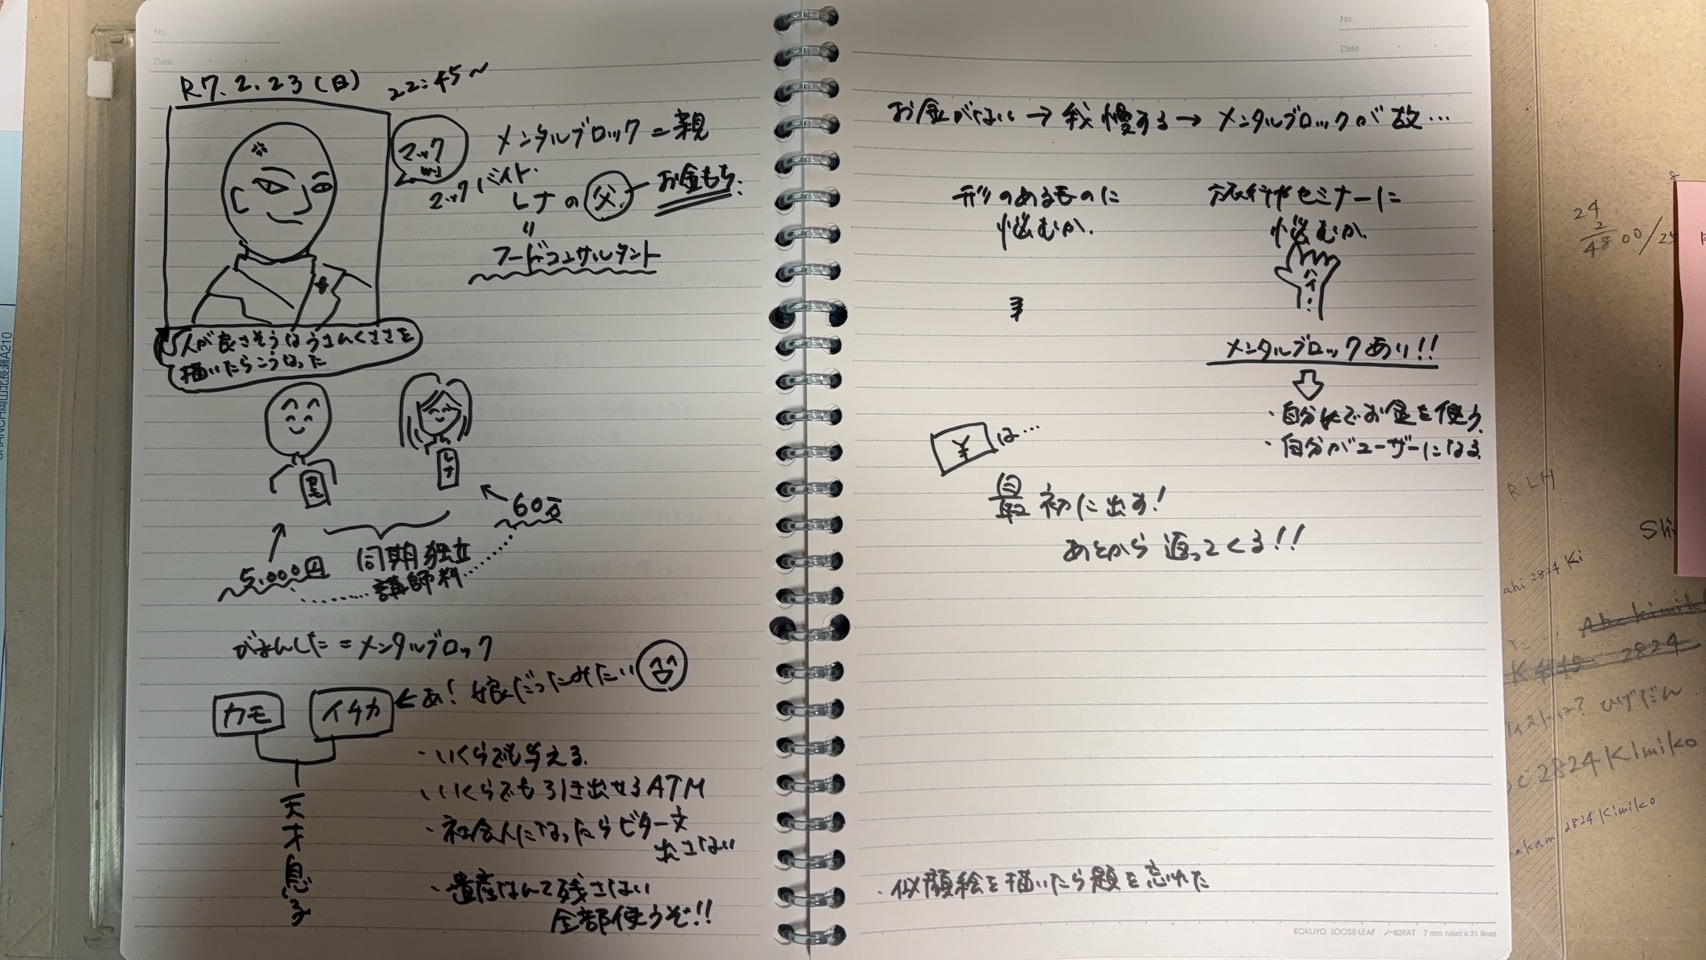 No.
Date
R7.2.23(日) 22:45〜
マック
マックバイト.
メンタルブロック=親
レナの父 ー お金もち.
〃
フードコンサルタント
人が良さそうなうさんくささを
描いたらこうなった
レナ
5,000円
60万
同期独立
講師料
がまんした=メンタルブロック
カモ
イチカ
←あ! 娘だったみたい
天才息子
・いくらでも与える.
・いくらでも引き出せるATM
・社会人になったらビター文
出さない
・遺産なんて残さない
全部使うぞ!!
No.
Date
お金がない→我慢する→メンタルブロックが故…
形のあるものに
悩むか.
旅行やセミナーに
悩むか.
ハイ!
メンタルブロックあり!!
・自分にでお金を使う.
・自分がユーザーになる.
¥は…
最初に出す!
あとから返ってくる!!
・似顔絵を描いたら題を忘れた
KOKUYO LOOSE-LEAF ノ-836AT 7 mm ruled×31 lines
24
2
4800/25
RLH
Shi
ahi 2824 Ki
2824
ひげだん
2824 Kimiko
akami 2824 Kimiko